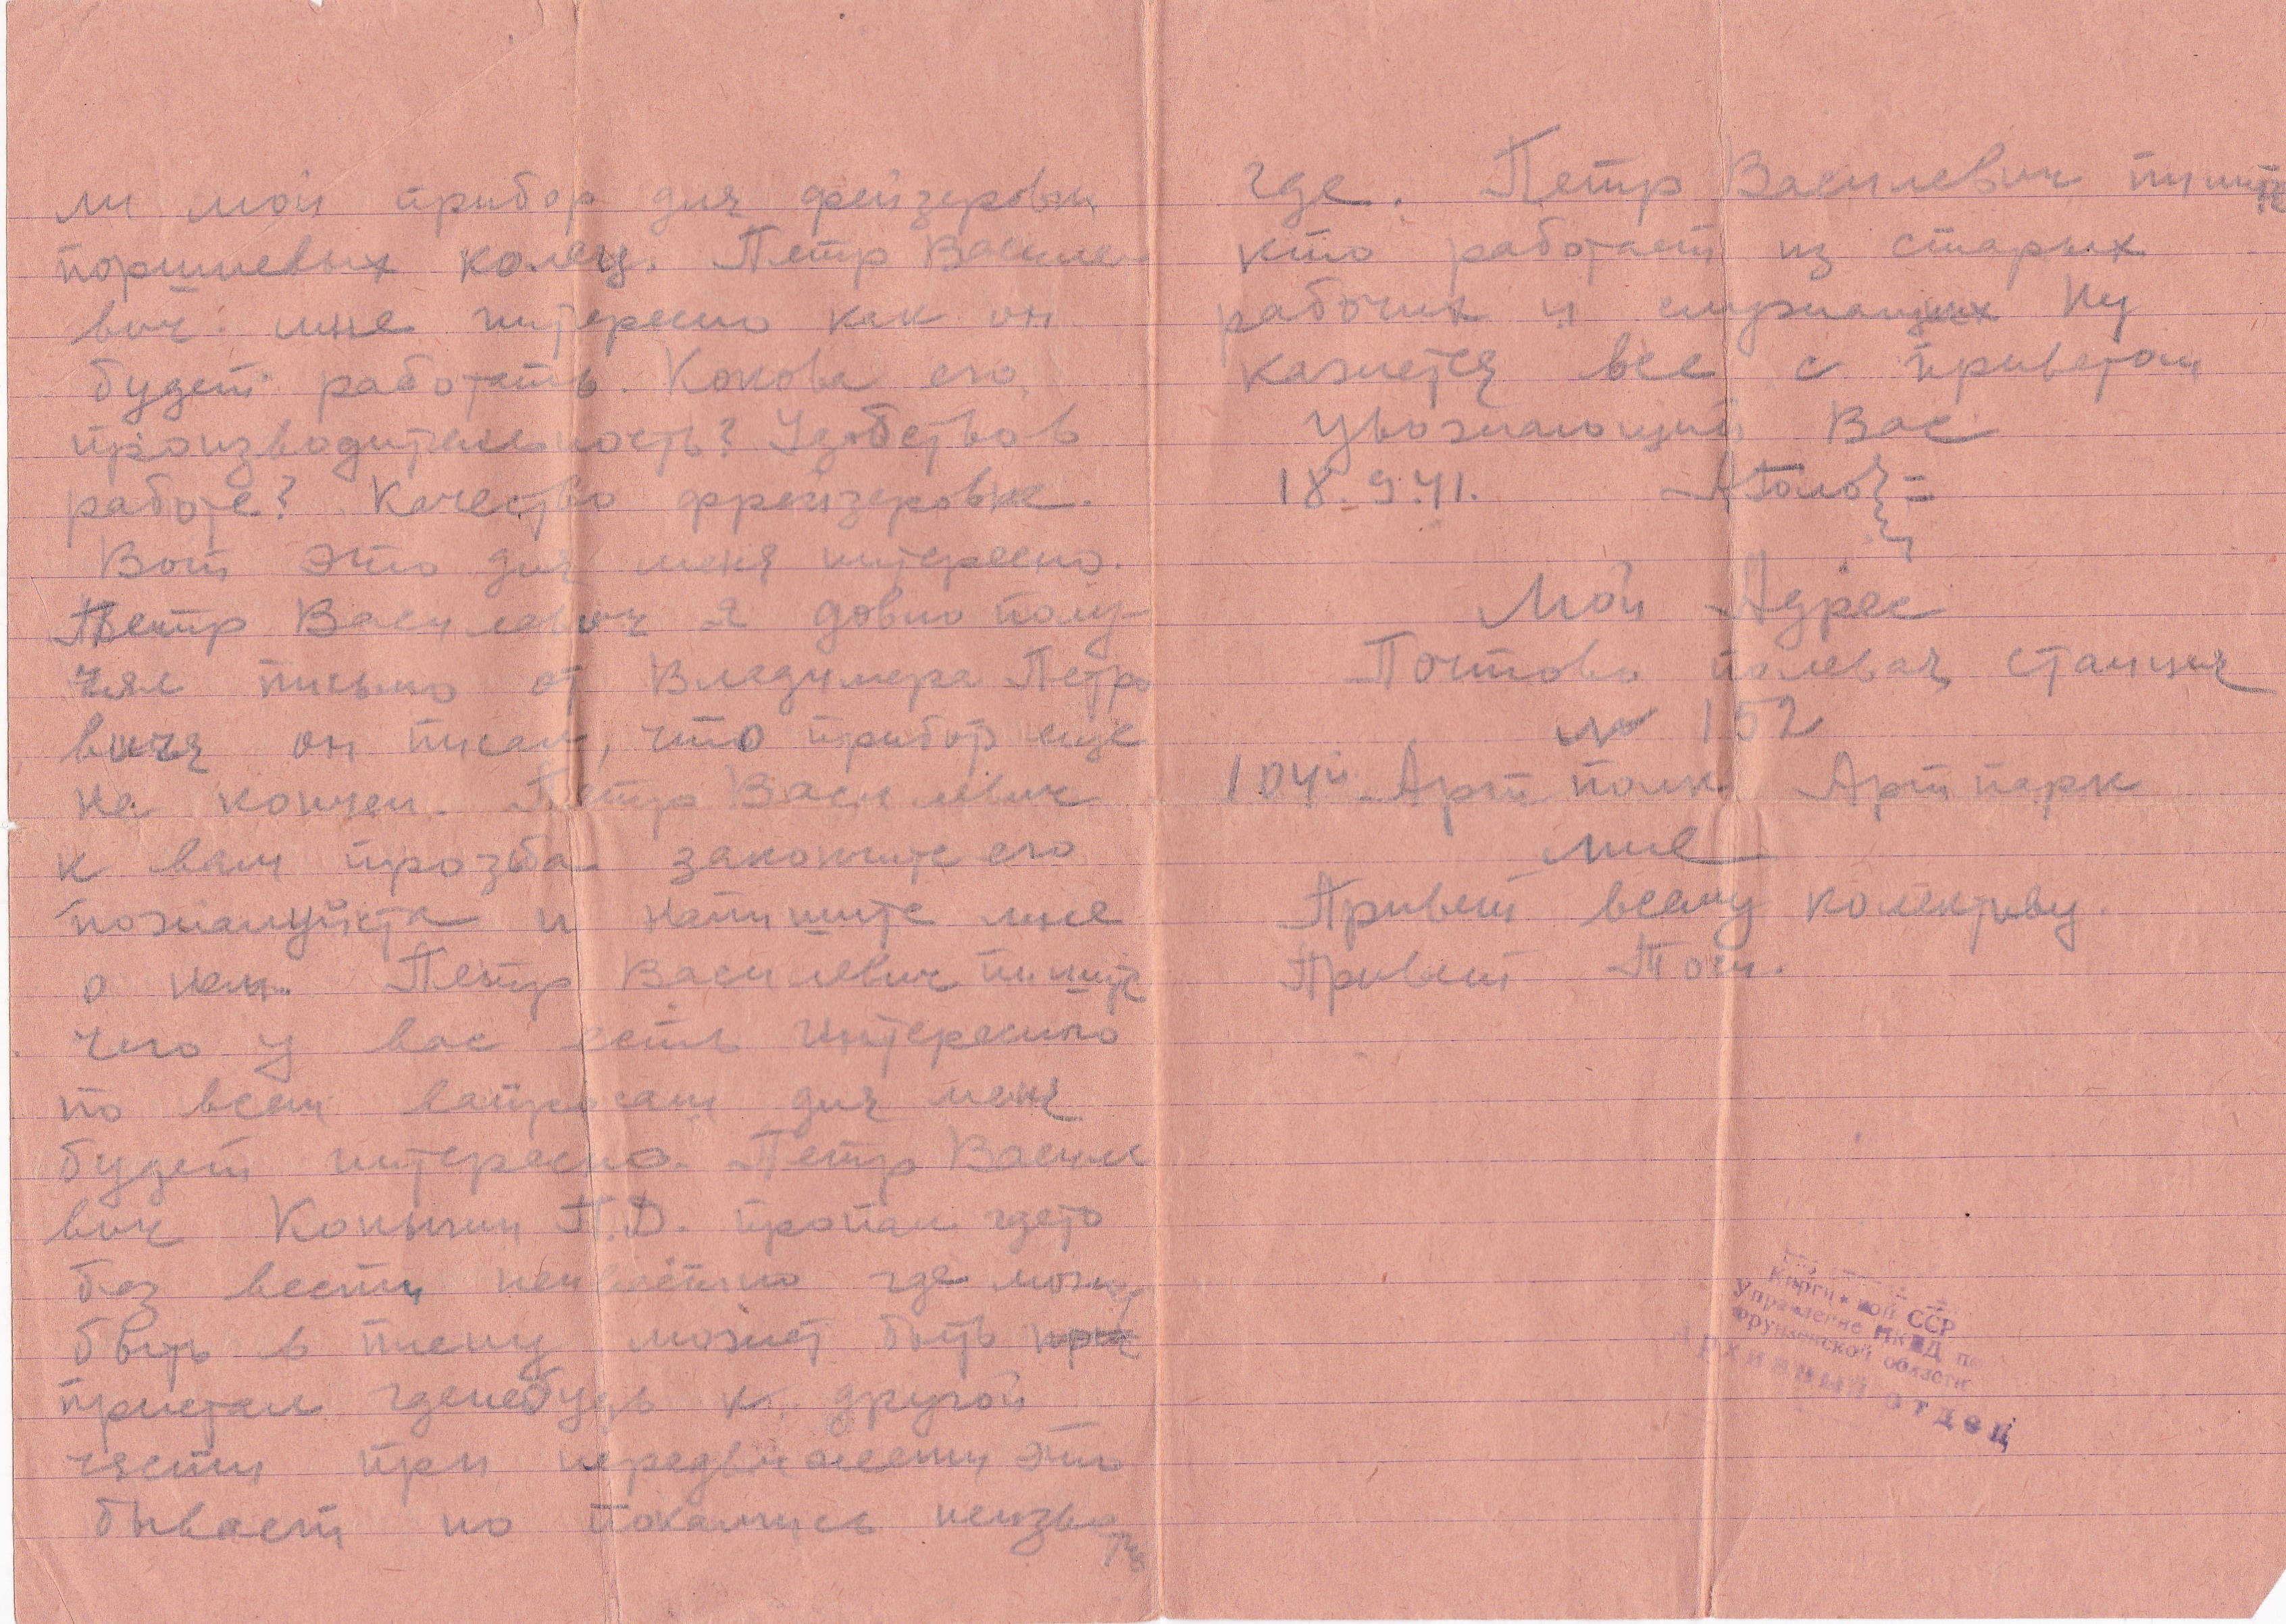 ли мой прибор для фрейзеровки
поршневых колец. Петр Василе-
вич мне интересно как он
будет работать. Кокова его
производительность? Удобство в
работе? Качество фрейзеровке.
Вот это для меня интересно.
Петр Василевич я довно полу-
чял письмо от Владимера Петро
вичя он писал, что прибор еще
не кончен. Петр Василевич
к вам прозьба закончите его
пожалуйста и напишите мне
о нем. Петр Василевич пишите
чего у вас есть интересного
по всем вапросам для меня
будет интересно. Петр Васили
вич П.Д. пропал гдето
без вести неизвестно где может
быть в плену может быть
пристал гденебудь к другой
части при передвижении это
бывает но покамись неизвестно
где. Петр Василевич пишите
кто работает из старых
рабочих и служащих Ну
кажется все с приветом
Увожающий Вас
18.9.41.
Мой Адрес
Почтова полевая станция
№ 152
104й Арт полк Арт парк
мне
Привет всему колективу.
Привет Тоси.
Киргизской ССР
Управление НКВД по
Фрунзенской области
Архивный отдел